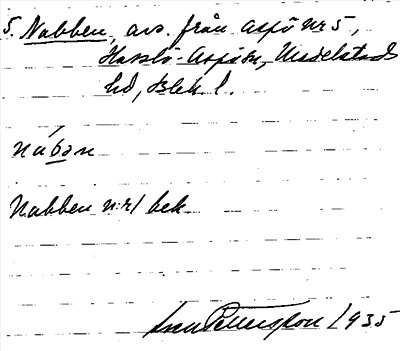 5. Nabben, avs. från Aspö nr 5,
Hasslö-Aspö sn, Medelstads
hd, Blek. l.
nábən
Nabben nr 1 bek.
Pettersson 1935